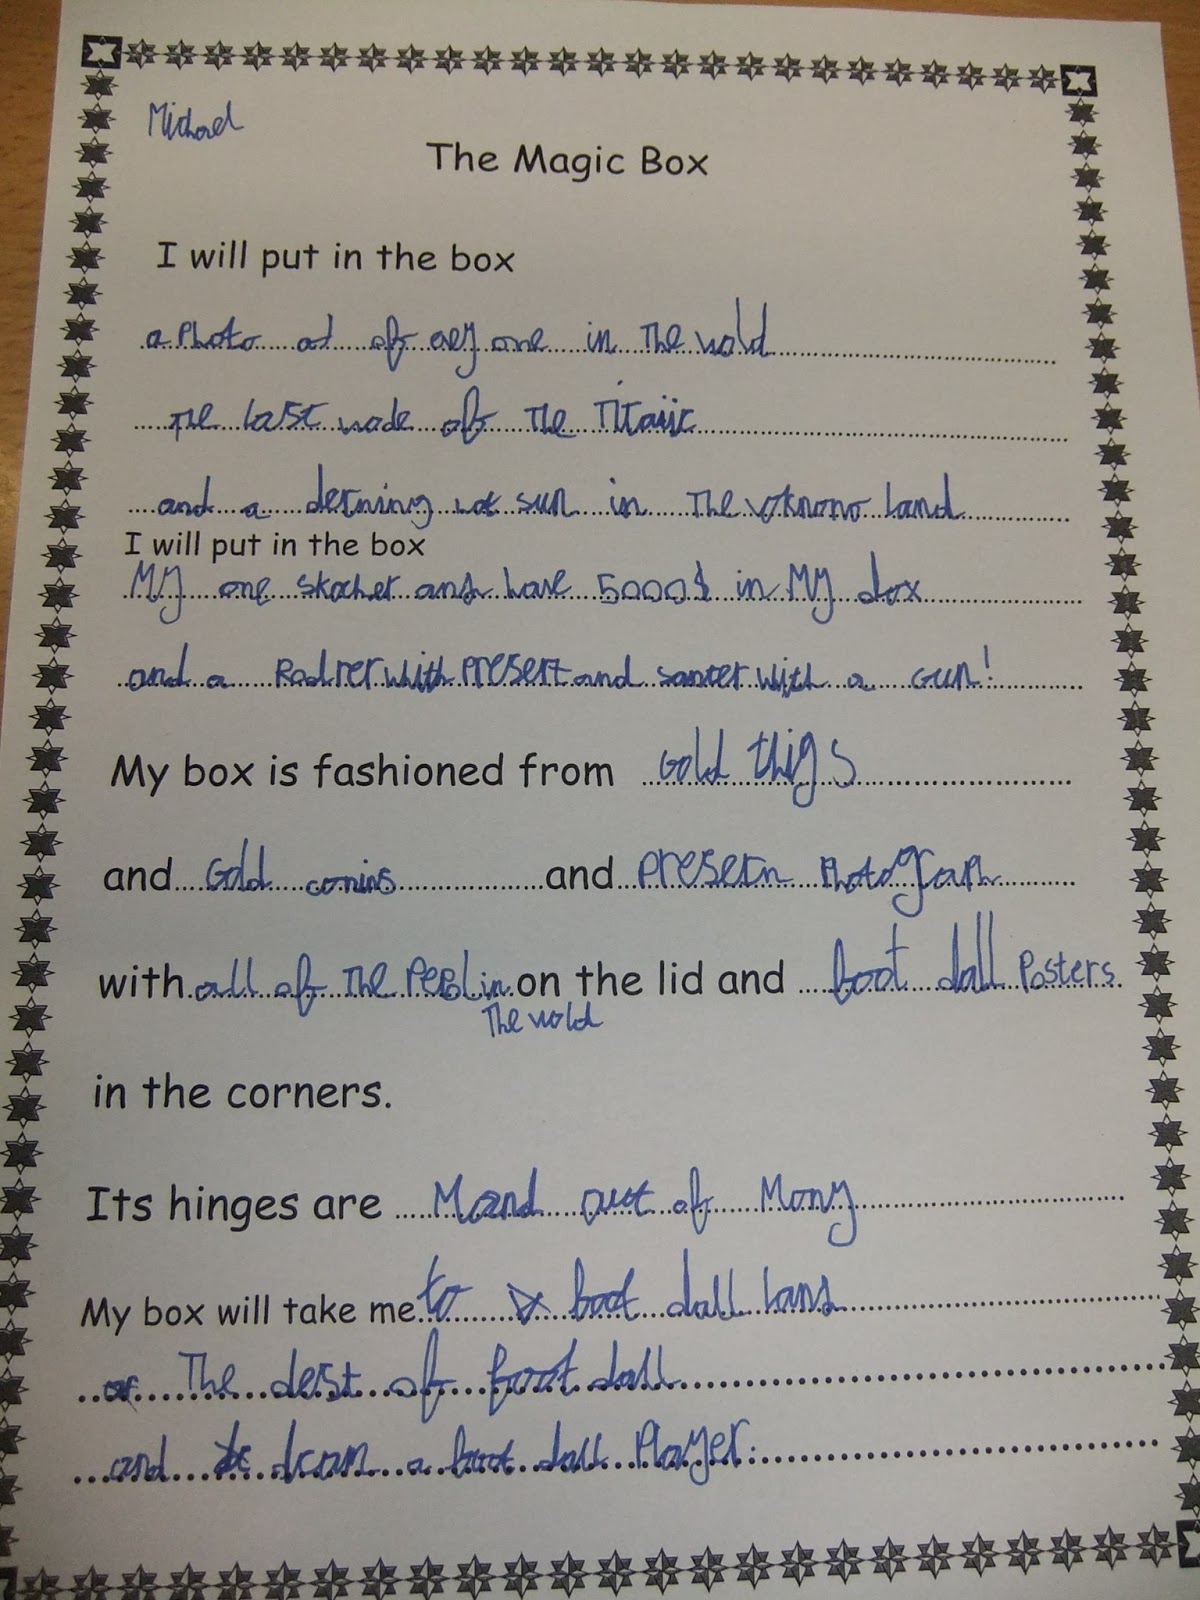 Michael
The Magic Box
I will put in the box
a Photo of evey one in The wold
The last made of The Titaiic
and a derning hot sun in The land
I will put in the box
My one and have 5000$ in My dox
and a with present and santer with a Gun!
My box is fashioned from Gold thigs
and Gold conins and presern Photograph
with all of The Pepl in on the lid and foot dall Posters
The wold
in the corners.
Its hinges are Mand out of Mony
My box will take me to foot dall lans
or The dest of foot dall
and a foot dall Player.